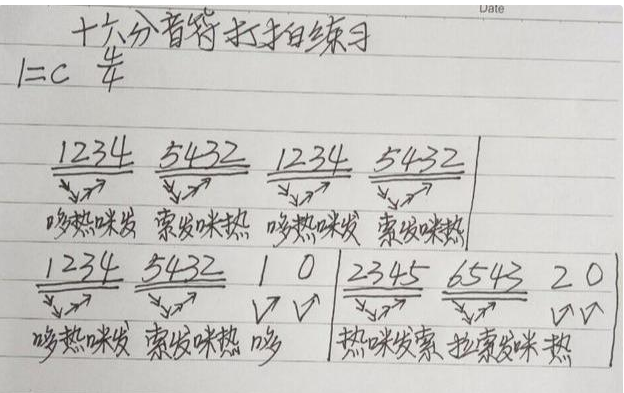 Date
十六分音符打拍练习
1=C 4/4
1234 5432 1234 5432 |
哆热咪发 索发咪热 哆热咪发 索发咪热
1234 5432 1 0 | 2345 6543 2 0 |
哆热咪发 索发咪热 哆 热咪发索 拉索发咪 热